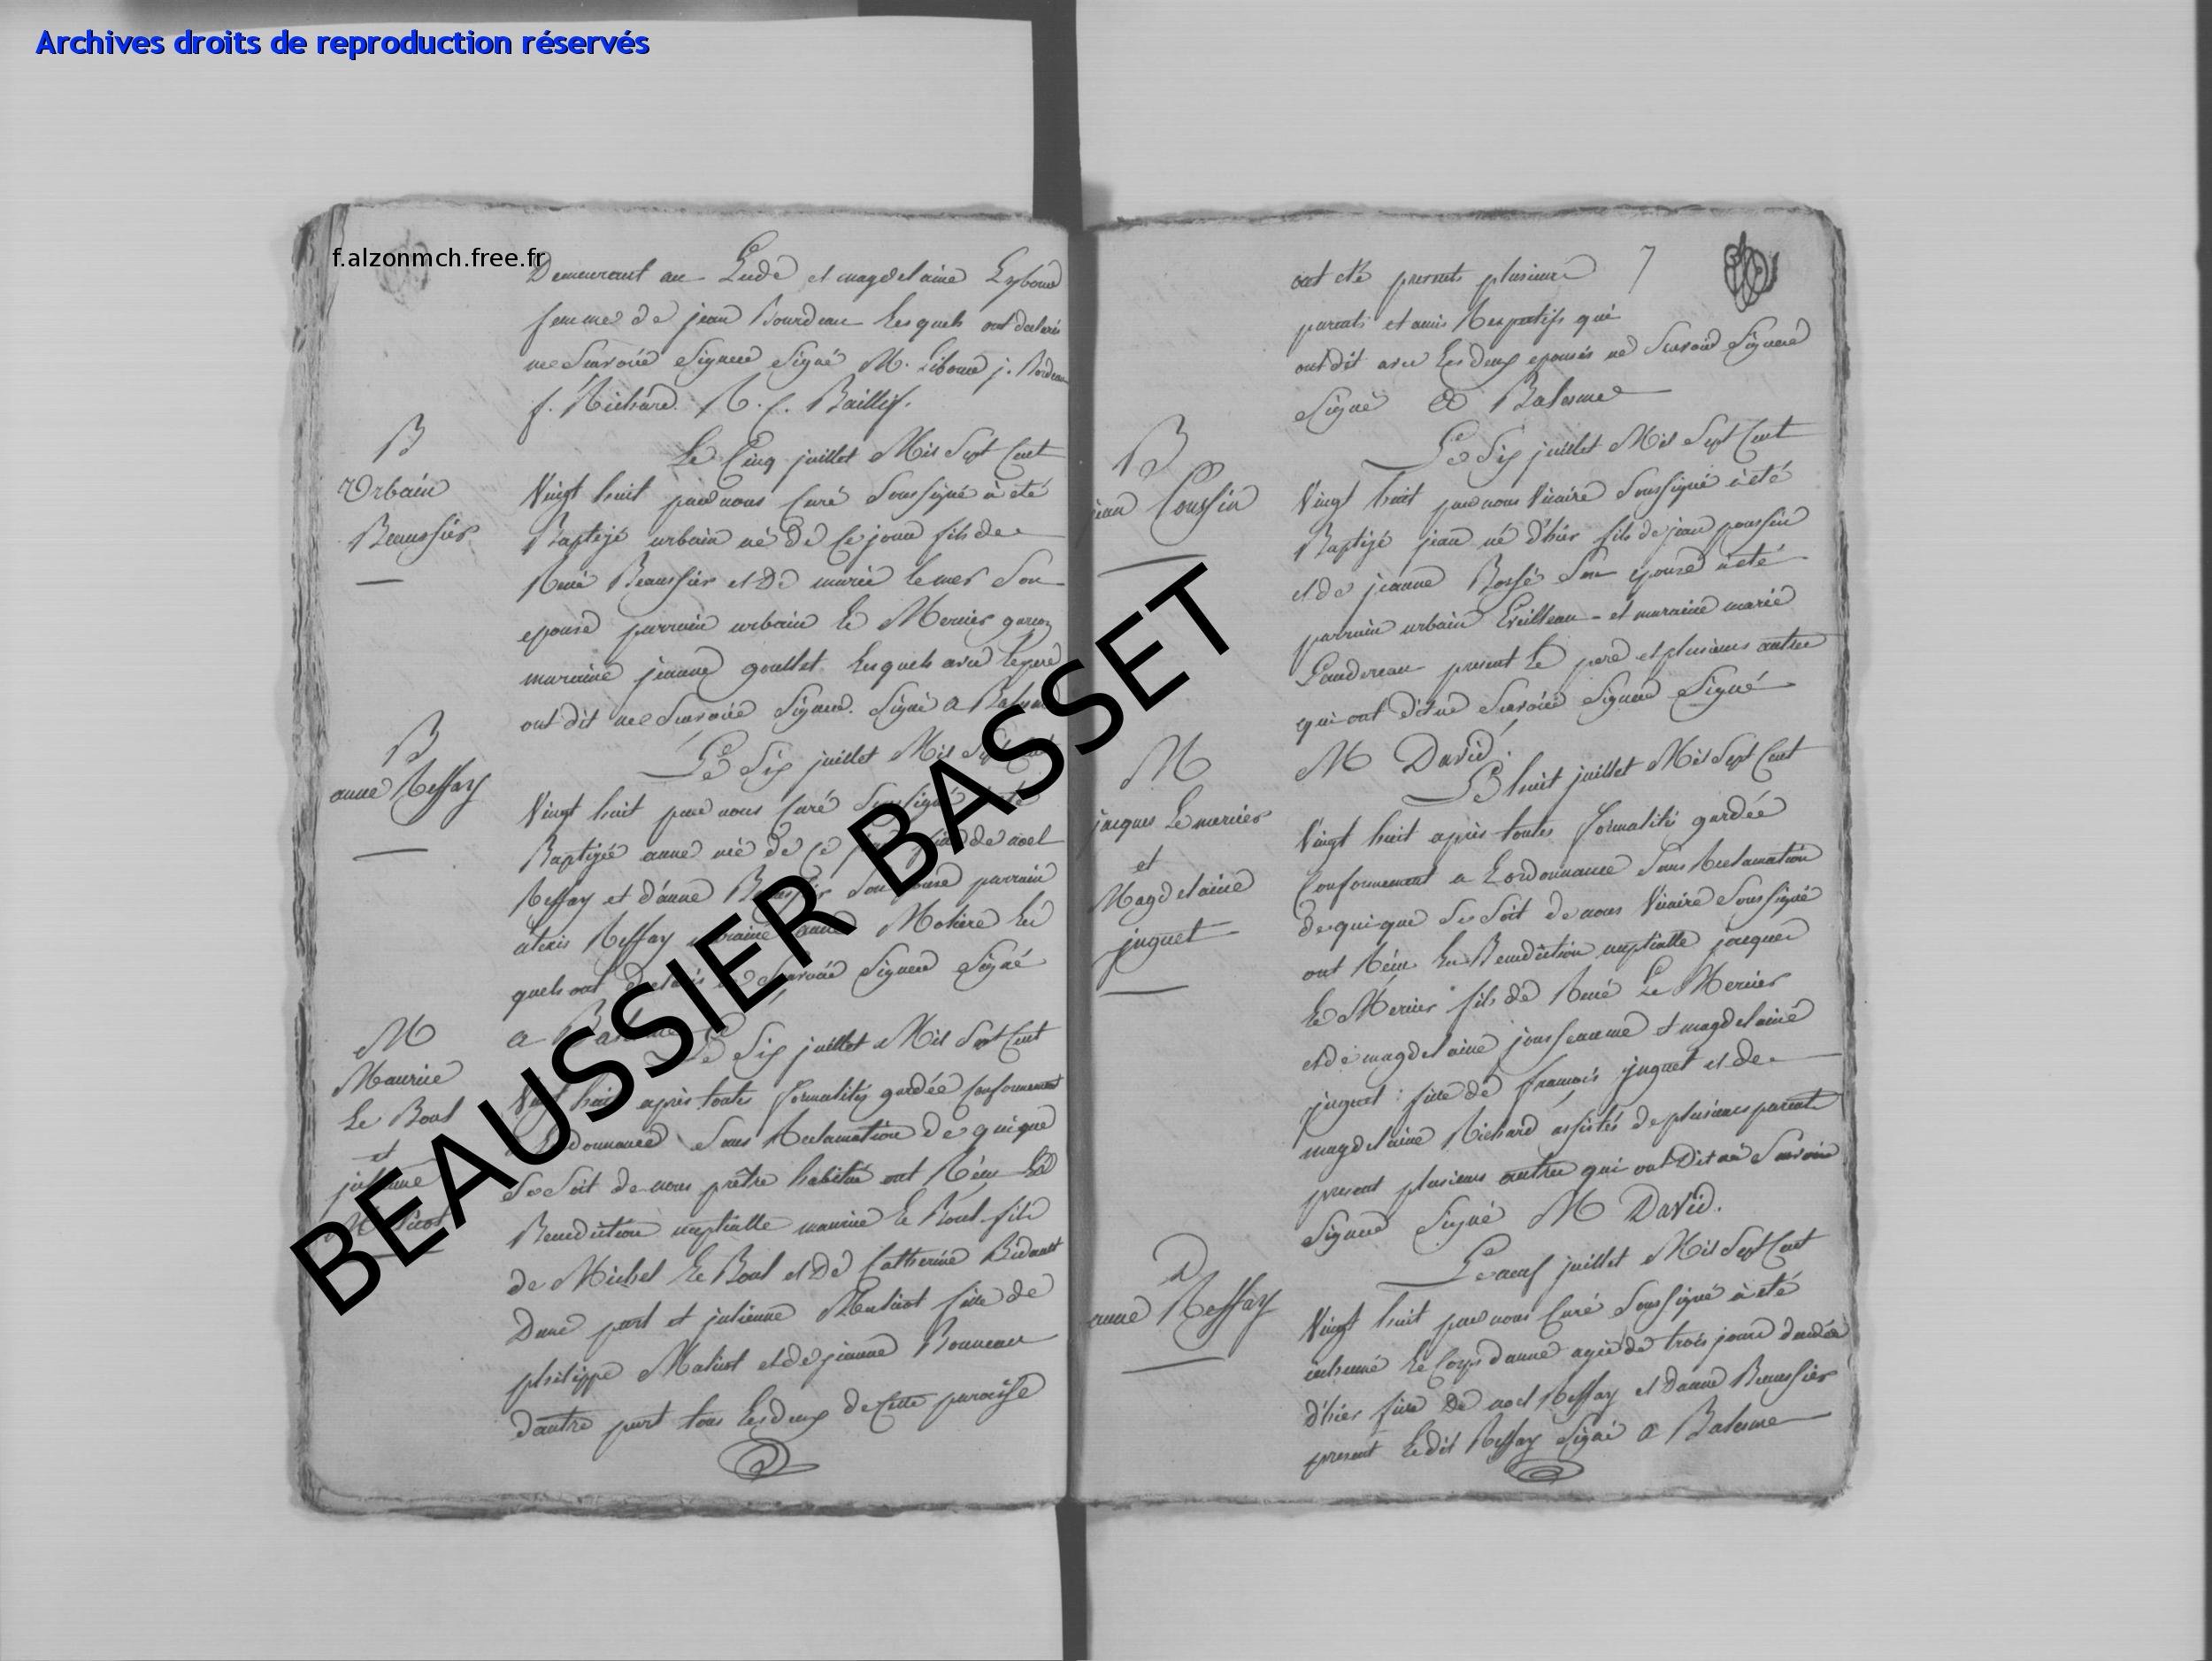 Archives droits de reproduction réservés
f.alzonmch.free.fr
BEAUSSIER BASSET
Demeurant au Lude et magdelaine
femme de jean Bourdeau lesquels ont declaré
ne Scavoir Signer Signé M. Liboue j. Bordeau
f. Richard. R. f. Baillif.
B
Urbain
Beaussier
Le Cinq juillet Mil Sept Cent
Vingt huit par nous Curé Soussigné à été
Baptizé urbain né de Ce jour fils de
René Beaussier et De marie lemer Son
epouse parrain urbain le Mercier garçon
maraine jeanne goullet lesquels avec le pere
ont dit ne Scavoir Signer. Signé a Balesme
B
anne Reffay
Le Six juillet Mil Sept Cent
Vingt huit par nous Curé Soussigné à été
Baptizée anne née de Ce jour fille de noel
Reffay et d'anne Beaussier Son epouse parrain
alexis Reffay maraine anne Moliere les
quels ont declaré ne Scavoir Signer Signé
a Balesme
M
Maurice
Le Boul
et
julienne
Malicot
Le Six juillet Mil Sept Cent
Vingt huit après toutes formalités gardée Conformement
a Lordonnance Sans Reclamation de quique
Se Soit de nous prêtre habitué ont Réçu La
Benediction nuptialle maurice le Boul fils
de Michel Le Boul et De Catherine Bidault
Dune part et julienne Malicot fille de
philippe Malicot et de jeanne Bonneau
dautre part tous les deux de Cette paroisse
7
ont été presents plusieurs
parents et amis Respectifs qui
ont dit avec les deux epousés ne Scavoir Signer
Signé a Balesme
B
jean Poussin
Le Six juillet Mil Sept Cent
Vingt huit par nous Vicaire Soussigné à été
Baptizé jean né d'hier fils de jean poussin
et de jeanne Bossé Son epouse à été
parrain urbain Eveilleau et maraine marie
Gaudereau present le pere et plusieurs autres
qui ont dit ne Scavoir Signer Signé
M David.
M
jacques Lemercier
et
Magdelaine
juguet
Le huit juillet Mil Sept Cent
Vingt huit après toutes formalités gardée
Conformement a Lordonnance Sans Reclamation
de quique Se Soit de nous Vicaire Soussigné
ont Réçu La Benediction nuptialle jacques
le Mercier fils de René Le Mercier
et de magdelaine jousseaume et magdelaine
juguet fille de françois juguet et de
magdelaine Richard assistés de plusieurs parents
present plusieurs autres qui ont Dit ne Scavoir
Signer Signé M David.
D
anne Reffay
Le neuf juillet Mil Sept Cent
Vingt huit par nous Curé Soussigné à été
inhumé le Corps danne agée de trois jours decedée
d'hier fille De noel Reffay et danne Beaussier
present Ledit Reffay Signé a Balesme